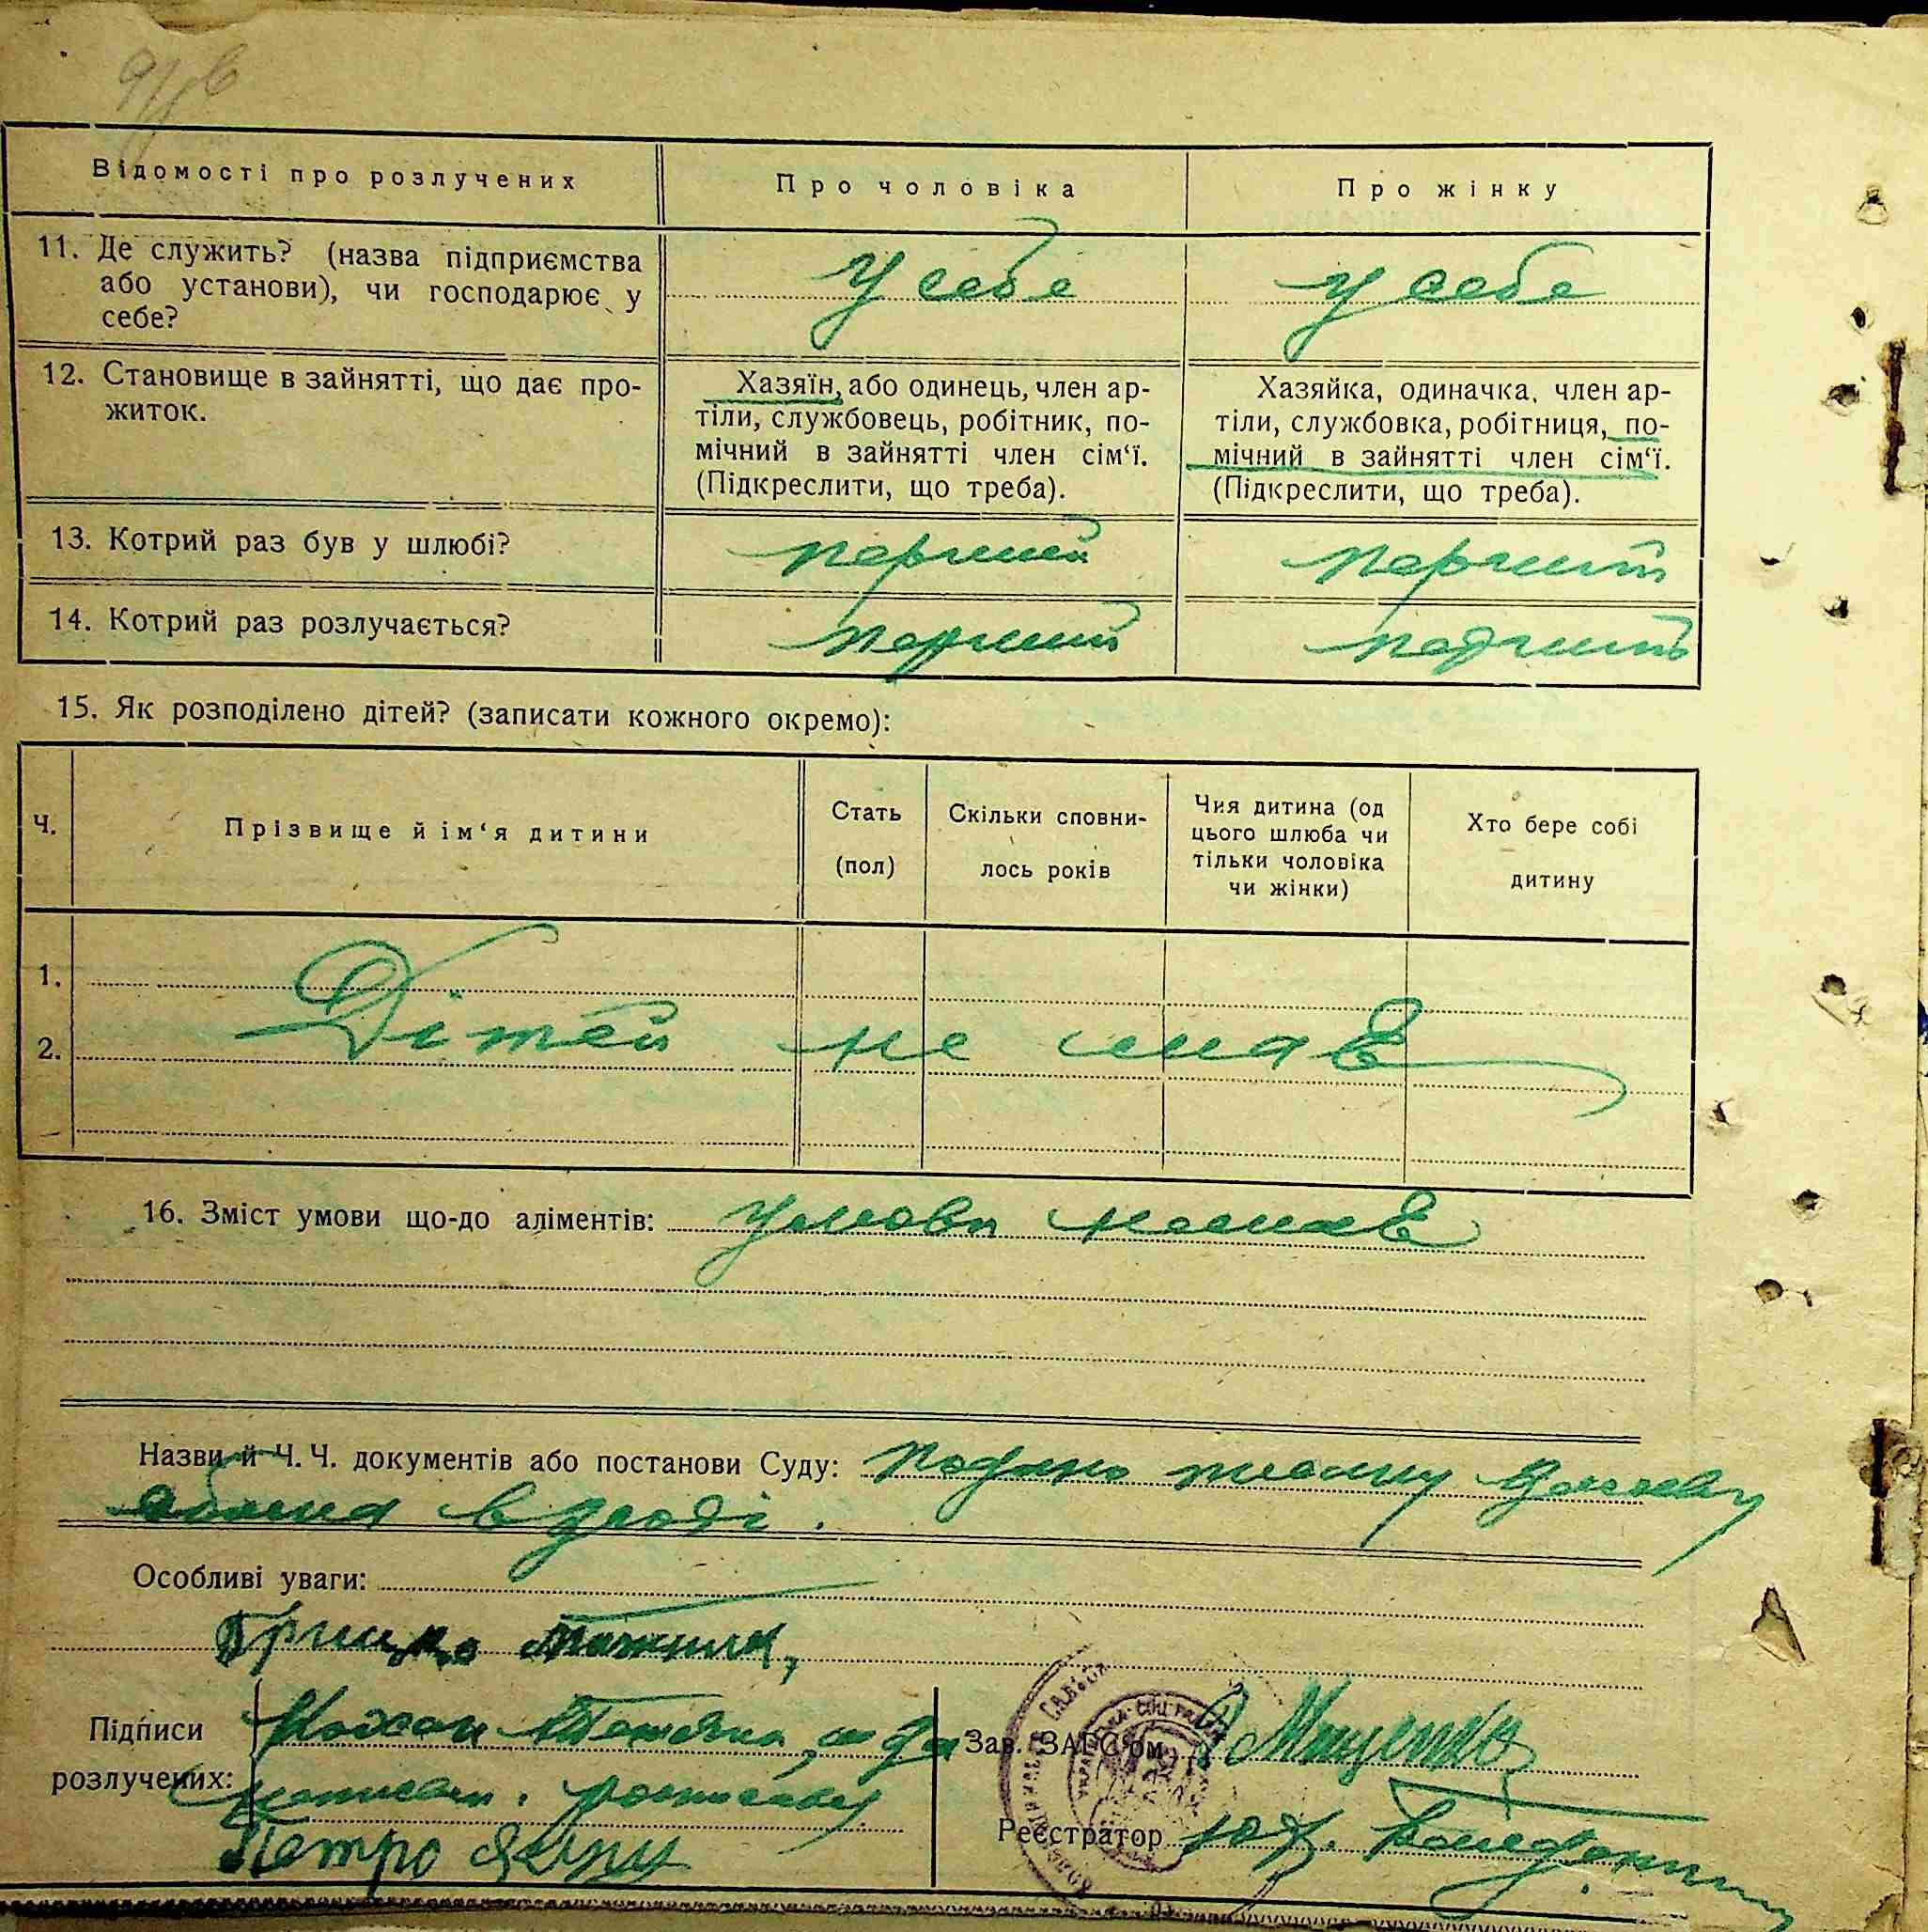 Відомості про розлучених
Про чоловіка
Про жінку
11. Де служить? (назва підприємства
або установи), чи господарює у
себе?
У себе
у себе
12. Становище в зайнятті, що дає про-
житок.
Хазяїн, або одинець, член ар-
тіли, службовець, робітник, по-
мічний в зайнятті член сім‘ї.
(Підкреслити, що треба).
Хазяйка, одиначка, член ар-
тіли, службовка, робітниця, по-
мічний в зайнятті член сім‘ї.
(Підкреслити, що треба).
13. Котрий раз був у шлюбі?
перший
перший
14. Котрий раз розлучається?
перший
перший
15. Як розподілено дітей? (записати кожного окремо):
Ч.
Прізвище й ім‘я дитини
Стать
(пол)
Скільки сповни-
лось років
Чия дитина (од
цього шлюба чи
тільки чоловіка
чи жінки)
Хто бере собі
дитину
1.
2.
Дітей не має
16. Зміст умови що-до аліментів: Умови немає
Назви й Ч. Ч. документів або постанови Суду: Подано
Особливі уваги:
Грицько
Підписи
розлучених:
Петро
Зав. ЗАГС‘ом
Реєстратор